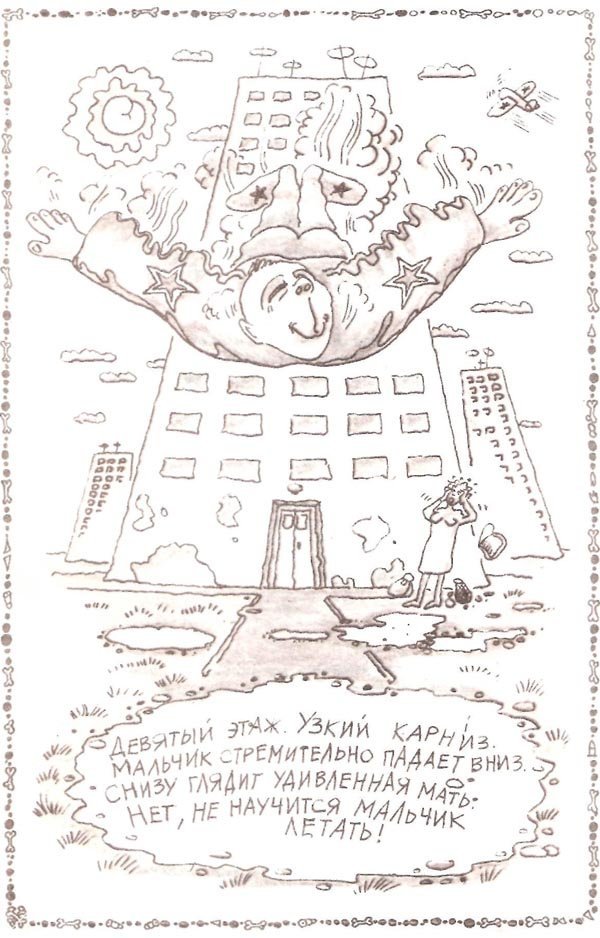 ДЕВЯТЫЙ ЭТАЖ. УЗКИЙ КАРНИЗ.
МАЛЬЧИК СТРЕМИТЕЛЬНО ПАДАЕТ ВНИЗ.
СНИЗУ ГЛЯДИТ УДИВЛЕННАЯ МАТЬ:
НЕТ, НЕ НАУЧИТСЯ МАЛЬЧИК
ЛЕТАТЬ!